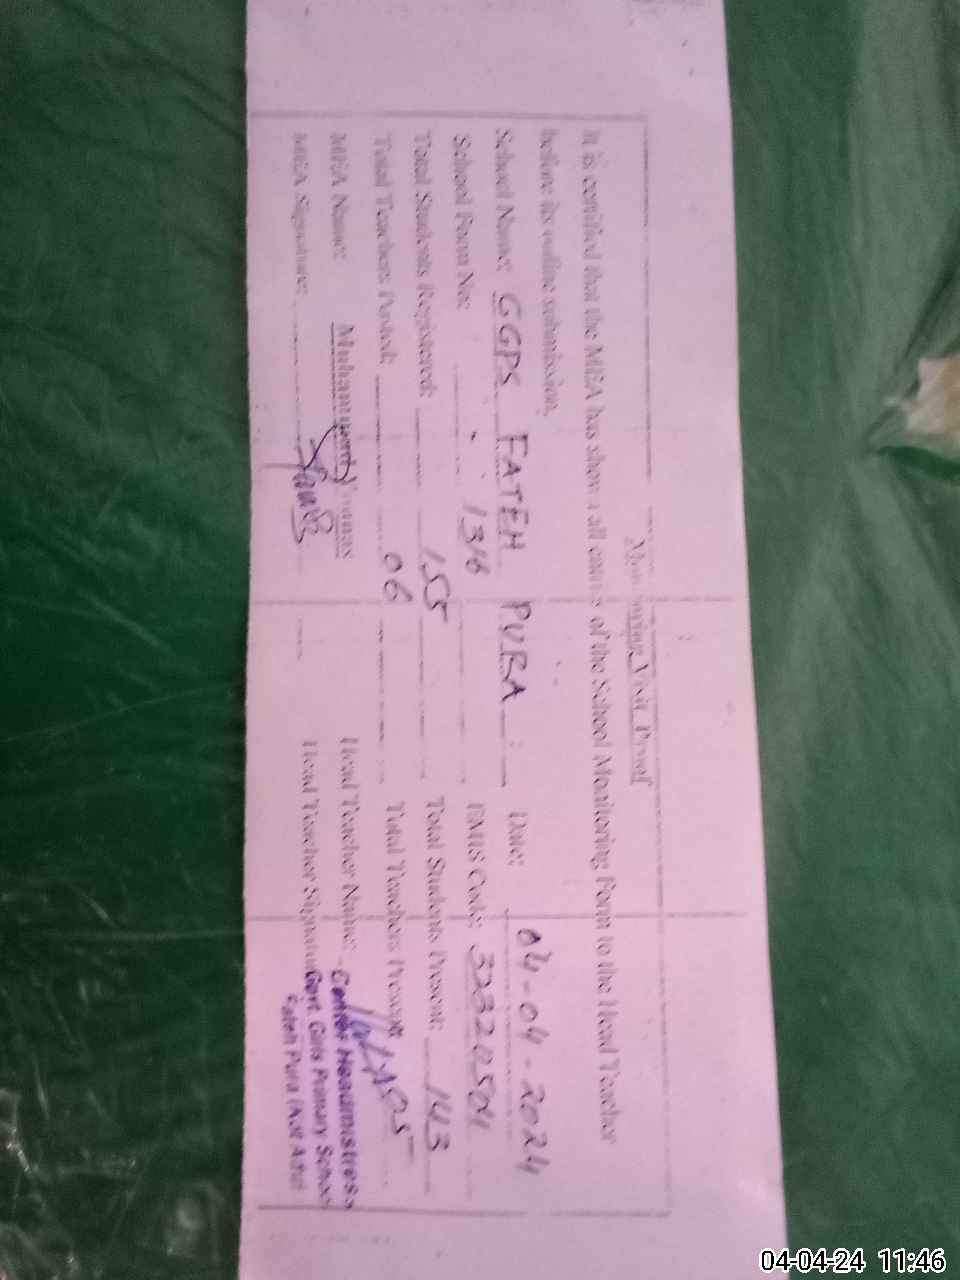 Monitoring Visit Proof
It is certified that the MEA has shown all entries of the School Monitoring Form to the Head Teacher
before its online submission.
School Name: GGPS FATEH PURA Date: 04-04-2024
School Form No: 1316 EMIS Code: 32320501
Total Students Registered: 155 Total Students Present: 143
Total Teachers Posted: 06 Total Teachers Present: 05
MEA Name: Muhammad Head Teacher Name:
MEA Signature: Head Teacher Signature
Center Headmistress
Govt. Girls Primary School
Fateh Pura (Kot Addu)
04-04-24 11:46